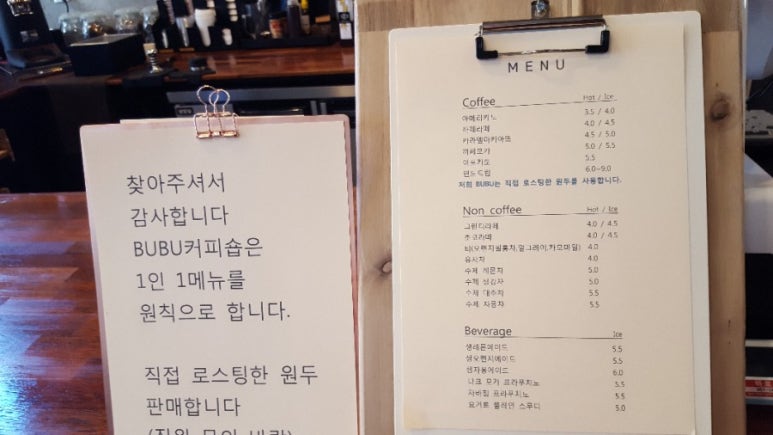 찾아주셔서
감사합니다
BUBU커피숍은
1인 1메뉴를
원칙으로 합니다.
직접 로스팅한 원두
판매합니다
MENU
Coffee Hot / Ice
아메리카노 3.5 / 4.0
카페라떼 4.0 / 4.5
카라멜마키아또 4.5 / 5.0
카페모카 5.0 / 5.5
아포카토 5.5
핸드드립 6.0~9.0
저희 BUBU는 직접 로스팅한 원두를 사용합니다.
Non coffee Hot / Ice
그린티라떼 4.0 / 4.5
초코라떼 4.0 / 4.5
티(오렌지필통차,얼그레이,카모마일) 4.0
유자차 4.0
수제 레몬차 5.0
수제 생강차 5.0
수제 대추차 5.5
수제 자몽차 5.5
Beverage Ice
생레몬에이드 5.5
생오렌지에이드 5.5
생자몽에이드 6.0
나크 모카 프라푸치노 5.5
자바칩 프라푸치노 5.5
요거트 플레인 스무디 5.0